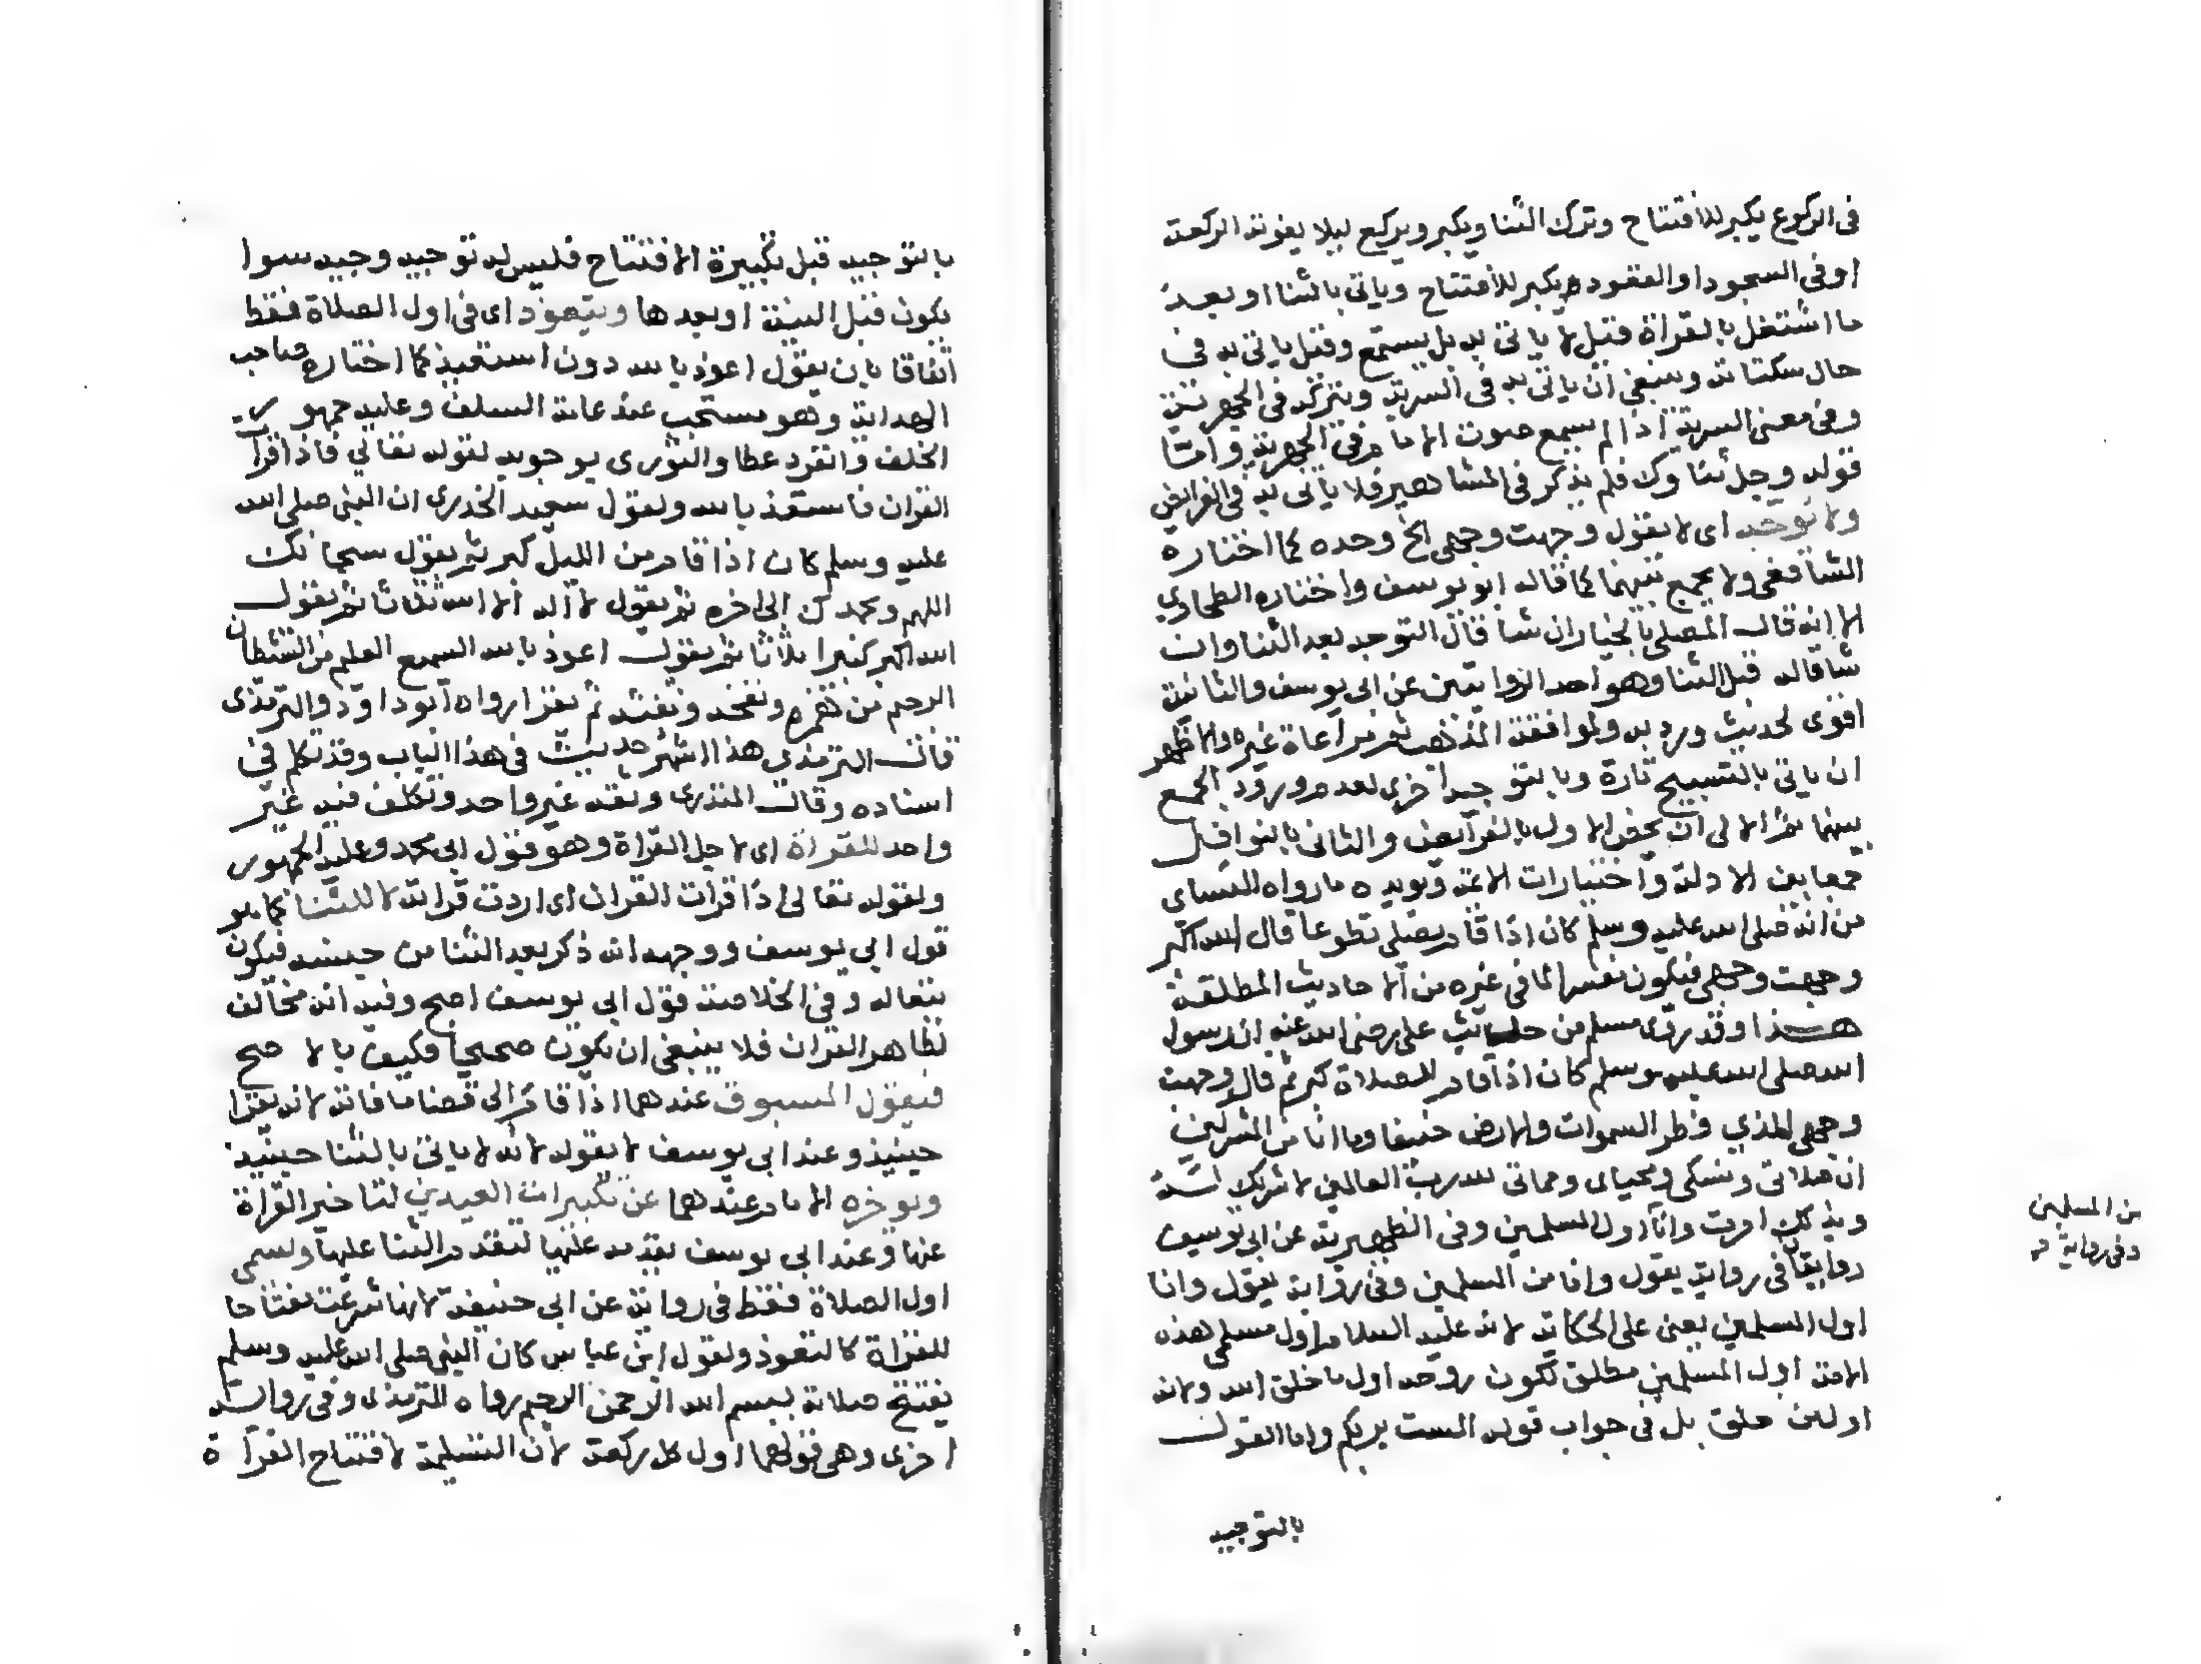 في الركوع يكبر للافتتاح وترك الثنا ويكبر ويركع ليلا يفوته الركعة
او في السجود او القعود يكبر للافتتاح وياتي بالثنا او بعد
ما اشتغل بالقراة قيل لا ياتي به بل يستمع وقيل ياتي به في
حال سكتاته وينبغي ان ياتي به في السرية ويتركه في الجهرية
وفي معنى السرية اذا لم يسمع صوت الامام في الجهرية واما
قوله وجل ثناوك فلم يذكر في المشاهير فلا ياتي به في الفرايض
ولا توجه اي لا يقول وجهت وجهي الخ وحده كما اختاره
الشافعي ولا يجمع بينهما كما قاله ابو يوسف واختاره الطحاوي
الا انه قال المصلي بالخيار ان شا قال التوجه بعد الثنا وان
شا قاله قبل الثنا وهو احد الروايتين عن ابي يوسف والثانية
اقوى لحديث ورد به ولموافقة المذهب ثم مراعاة غيره والاظهر
ان ياتي بالتسبيح تارة وبالتوجيه اخرى لعدم ورود الجمع
بينهما ثم الاولى ان يخص الاول بالفرايض والثاني بالنوافل
جمعا بين الادلة واختيارات الايمة ويويده ما رواه النساي
من انه صلى الله عليه وسلم كان اذا قام يصلي تطوعا قال الله اكبر
وجهت وجهي فيكون مفسرا لما في غيره من الاحاديث المطلقة
هذا وقد روى مسلم من حديث علي رضي الله عنه ان رسول
الله صلى الله عليه وسلم كان اذا قام للصلاة كبر ثم قال وجهت
وجهي للذي فطر السموات والارض حنيفا وما انا من المشركين
ان صلاتي ونسكي ومحياي ومماتي لله رب العالمين لا شريك له
وبذلك امرت وانا اول المسلمين وفي الظهيرية عن ابي يوسف
روايتان في رواية يقول وانا من المسلمين وفي رواية يقول وانا
اول المسلمين يعني على الحكاية لانه عليه السلام اول مسلمي هذه
الامة اول المسلمين مطلق لكون روحه اول ما خلق الله ولانه
اول من خلق بلى في جواب قوله الست بربكم واما القول
بالتوجيه
من المسلمين
وفي رواية م
بالتوجيه قبل تكبيرة الافتتاح فليس له توجيه وجيه سوا
يكون قبل النية او بعدها ويتعوذ اي في اول الصلاة فقط
اتفاقا بان يقول اعوذ بالله دون استعيذ كما اختاره صاحب
الهداية وهو مستحب عند عامة السلف وعليه جمهور
الخلف وانفرد عطا والثوري بوجوبه لقوله تعالي فاذا قرات
القران فاستعذ بالله ولقول سعيد الخدري ان النبي صلى الله
عليه وسلم كان اذا قام من الليل كبر ثم يقول سبحانك
اللهم وبحمدك الى اخره ثم يقول لا اله الا الله ثلاثا ثم يقول
الله اكبر كبيرا ثلاثا ثم يقول اعوذ بالله السميع العليم من الشيطان
الرجيم من همزه ونفخه ونفثه ثم يقرا رواه ابو داود والترمذي
قال الترمذي هذا اشهر حديث في هذا الباب وقد تكلم في
اسناده وقال المنذري وثقه غير واحد وتكلف فيه غير
واحد للقراة اي لاجل القراة وهو قول ابي محمد وعليه الجمهور
ولقوله تعالى اذا قرات القران اي اردت قراته لا للثنا كما هو
قول ابي يوسف ووجهه انه ذكر بعد الثنا من جنسه فيكون
تبعا له وفي الخلاصة قول ابي يوسف اصح وفيه انه مخالف
لظاهر القران فلا ينبغي ان يكون صحيحا فكيف بالاصح
فيقول المسبوق عندهما اذا قام الى قضا ما فاته لانه يقرا
حينيذ وعند ابي يوسف لا يقوله لانه لا ياتي بالثنا حينيذ
ويوخره الامام عندهما عن تكبيرات العيدين لتاخير القراة
عنها وعند ابي يوسف يقدمه عليها لتقدم الثنا عليها ويسمي
اول الصلاة فقط في رواية عن ابي حنيفة لانها شرعت مفتاحا
للقراة كالتعوذ ولقول ابن عباس كان النبي صلى الله عليه وسلم
يفتتح صلاته ببسم الله الرحمن الرحيم رواه الترمذي وفي رواية
اخرى وهي قولهما اول كل ركعة لان التسمية لافتتاح القراة